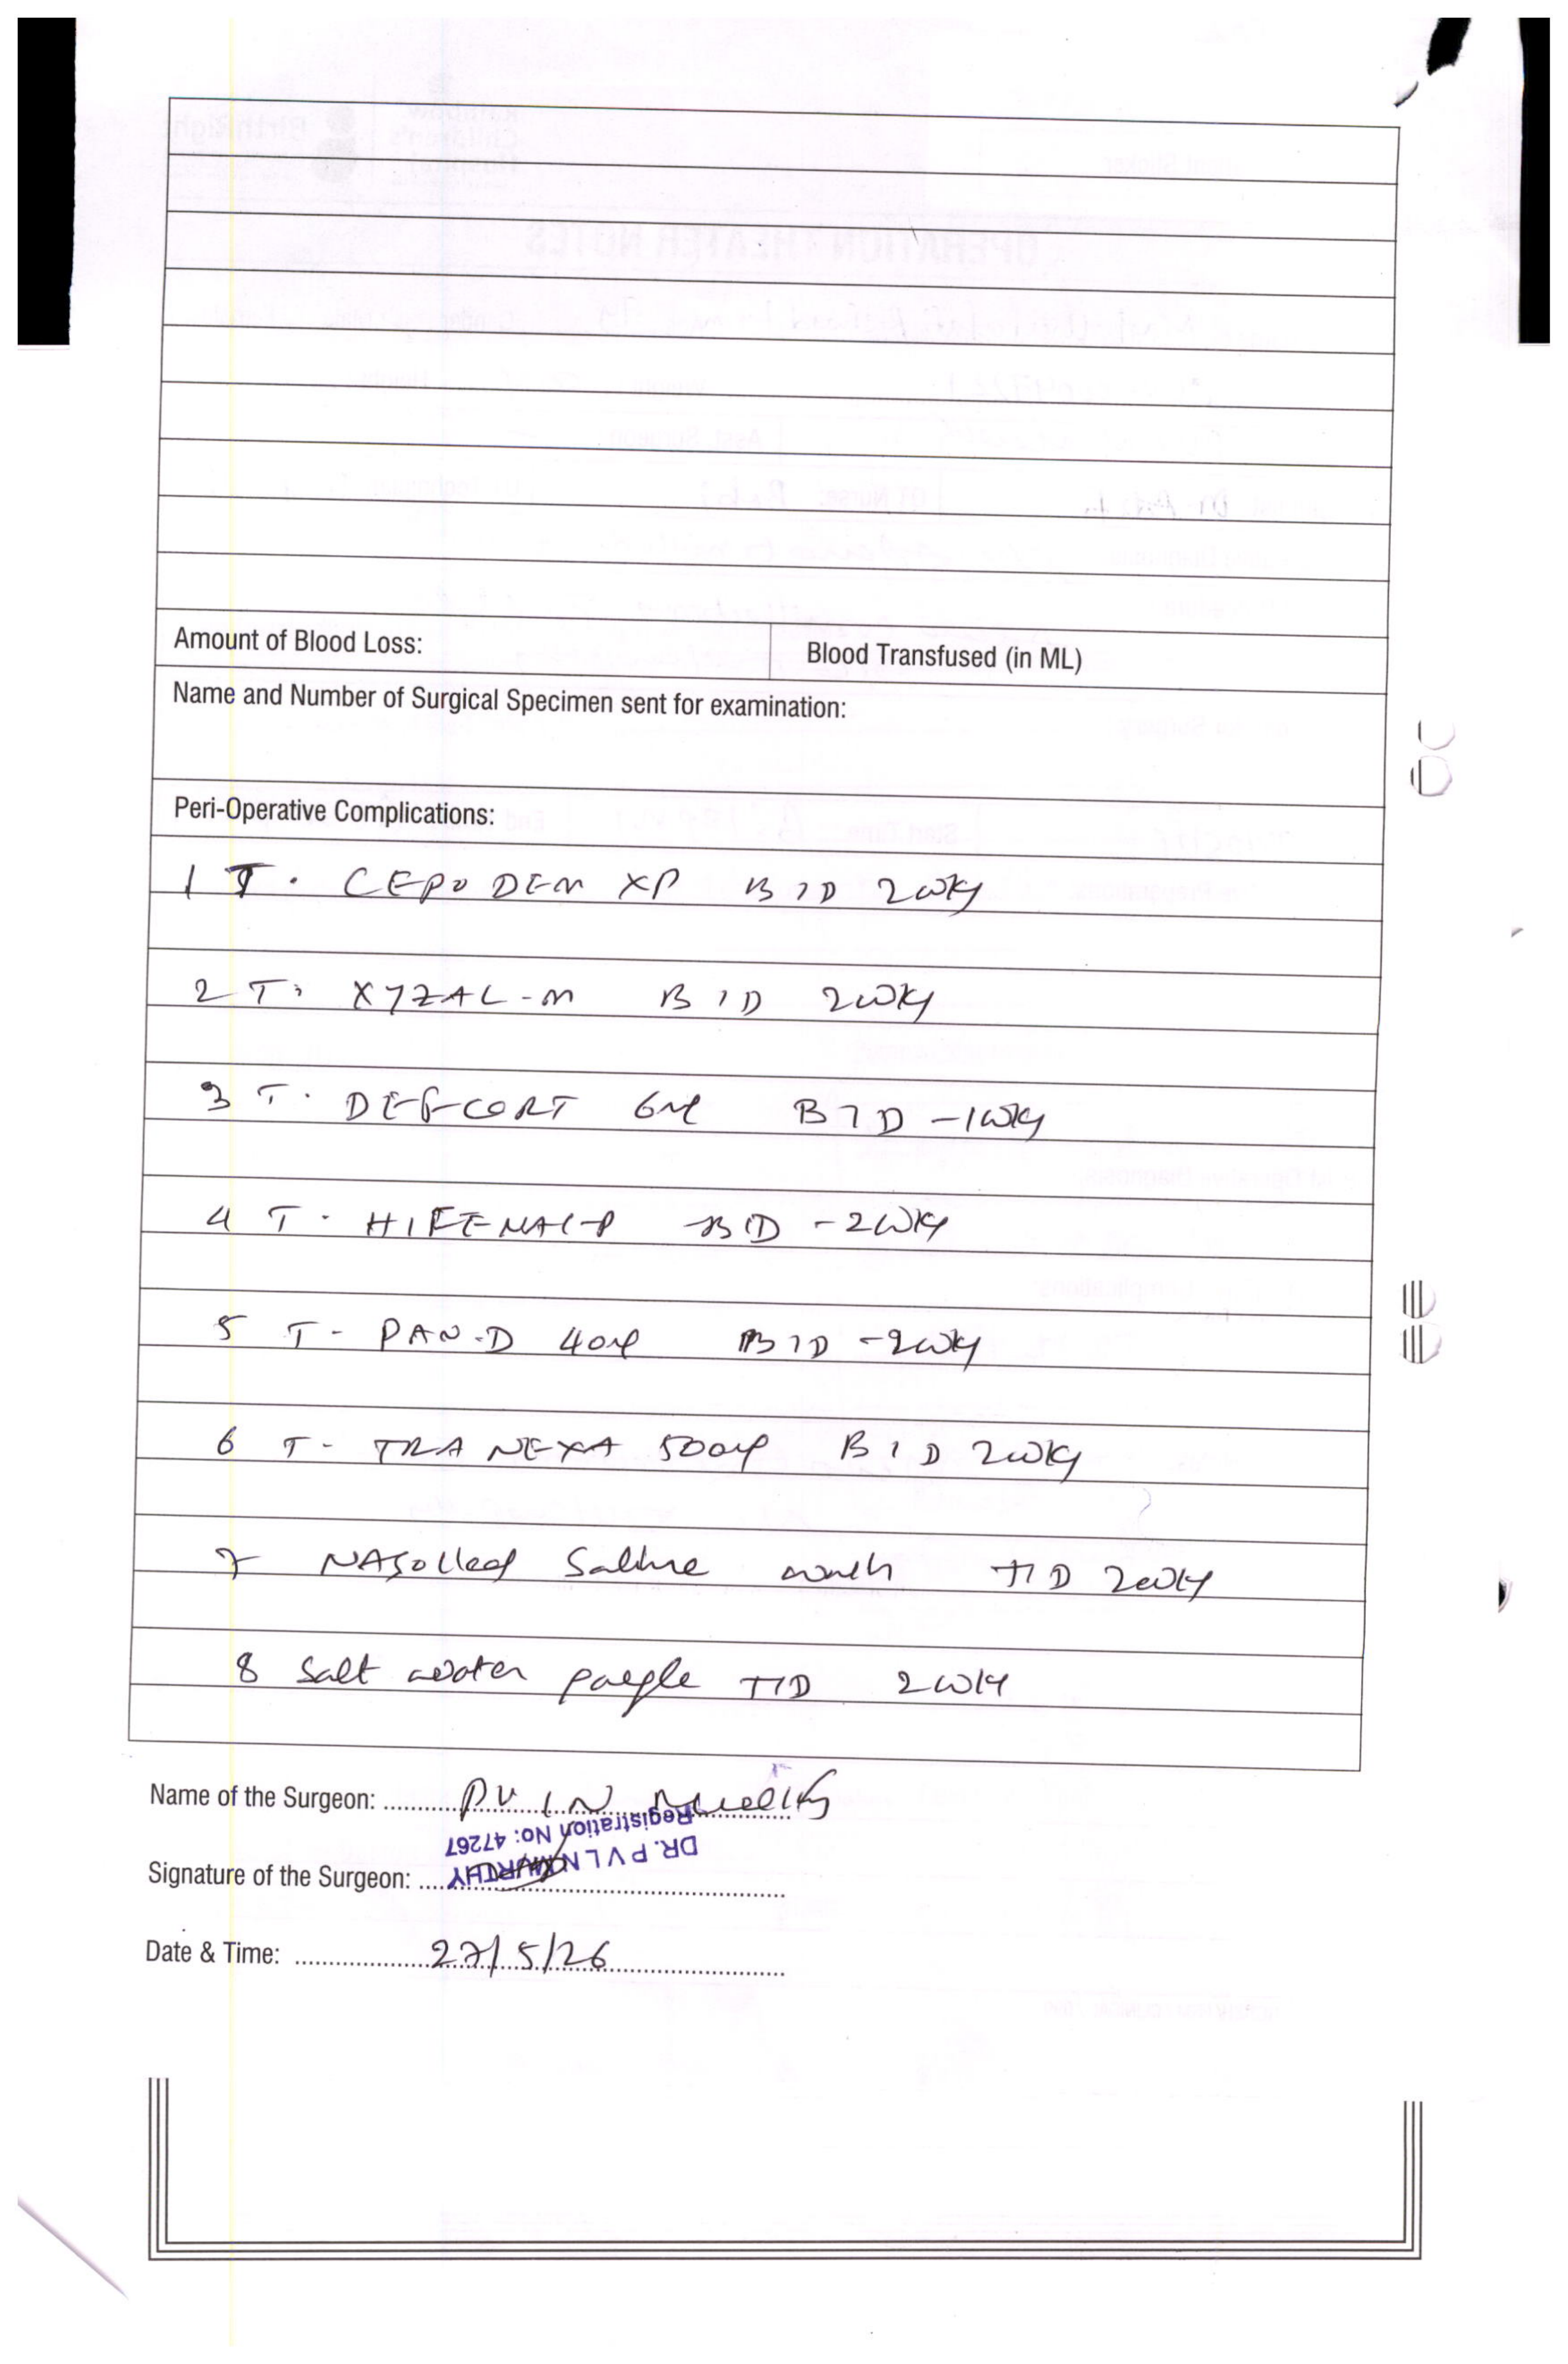 Amount of Blood Loss:
Blood Transfused (in ML)
Name and Number of Surgical Specimen sent for examination:
Peri-Operative Complications:
1 T. CEPODEM XP BID 2wky
2 T. XYZAL-M BID 2wky
3 T. DEFCORT 6mg BID -1wky
4 T. HIFENAC-P BID -2wky
5 T- PAN-D 40mg BID -2wky
6 T- TRANEXA 500mg BID 2wky
7 Saline wash TID 2wky
8 Salt water gargle TID 2wky
Name of the Surgeon: PVLN Murthy
Registration No: 47267
DR. P V L N MURTHY
Signature of the Surgeon:
Date & Time: 27/5/26